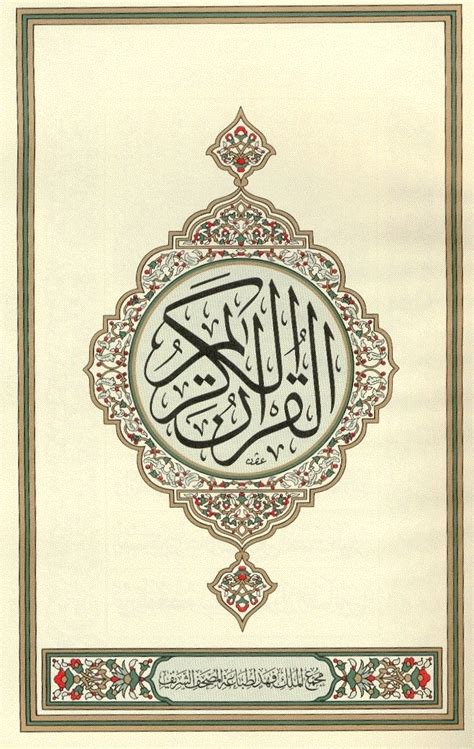 القرآن الكريم
مجمع الملك فهد لطباعة المصحف الشريف